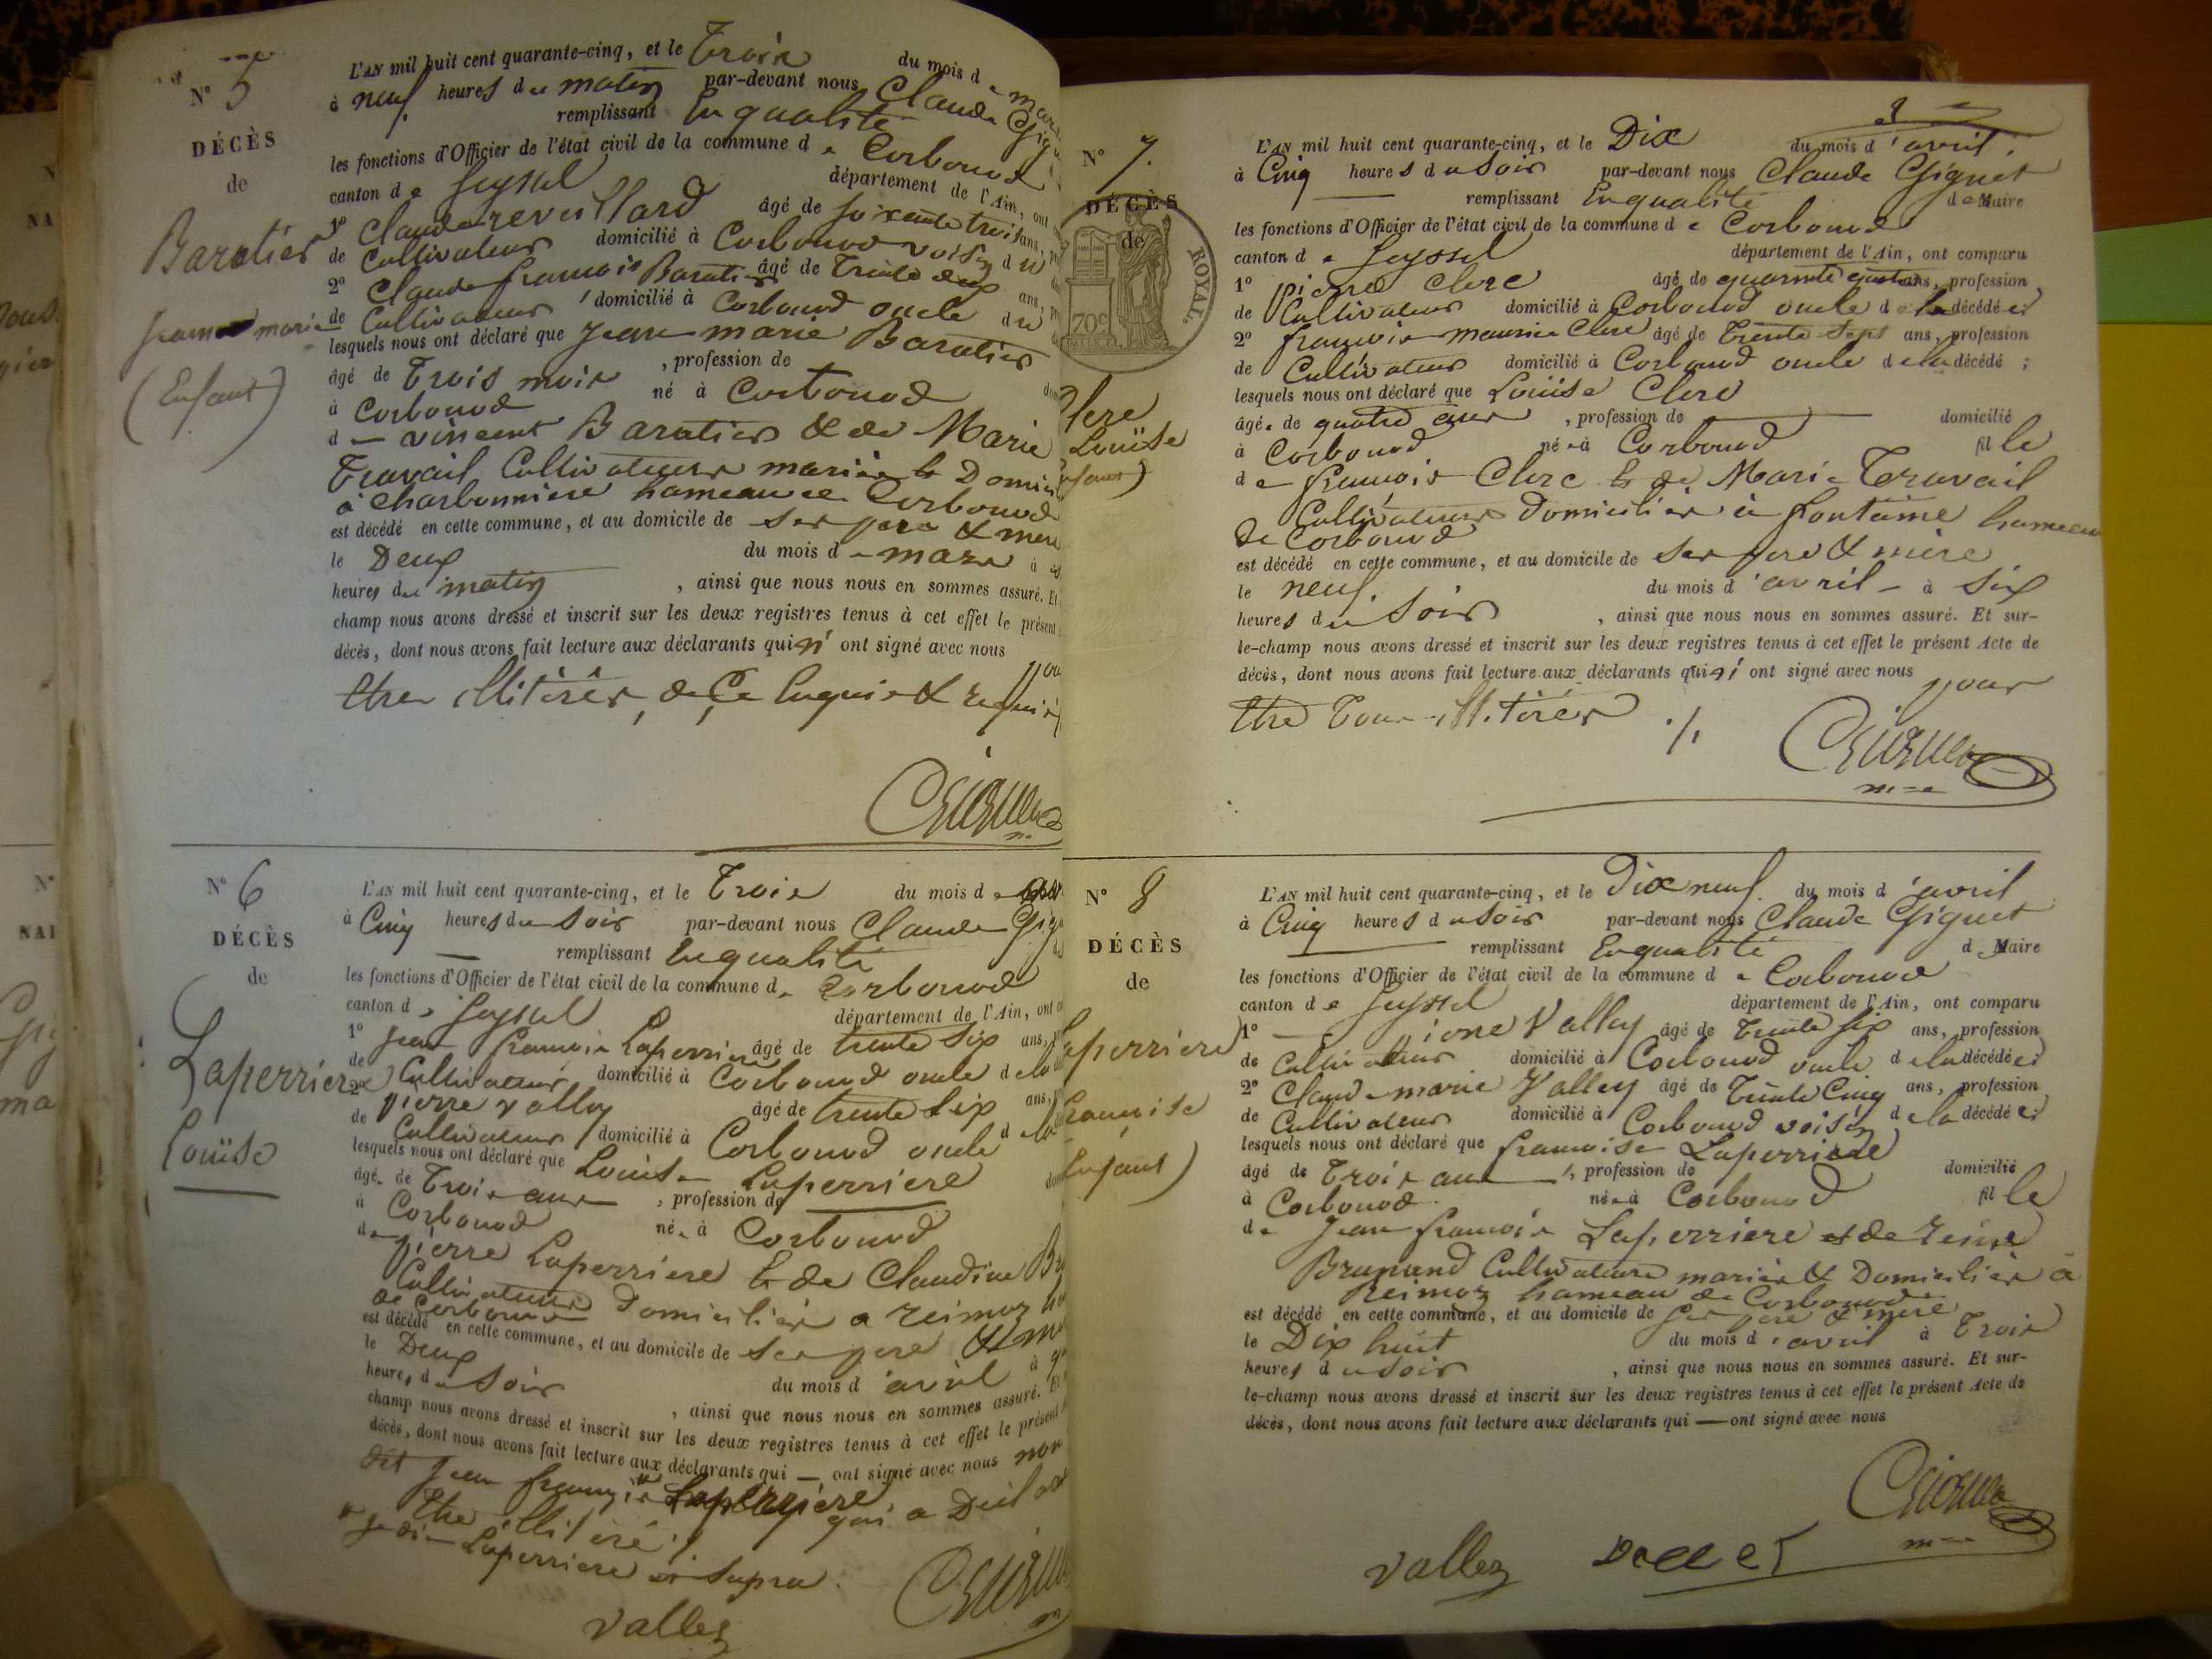 N° 5
DÉCÈS
de
Baratier
jean marie
(Enfant)
L'AN mil huit cent quarante-cinq, et le Trois du mois d e mar
à neuf heures du matin par-devant nous Claude Gig
remplissant En qualité
les fonctions d'Officier de l'état civil de la commune d e Corbonod
canton d e Seyssel département de l'Ain, ont
1° Claude revillard âgé de soixante trois ans,
de Cultivateur domicilié à Corbonod voisin du
2° Claude françois Baratier âgé de Trente deux ans,
de Cultivateur domicilié à Corbonod oncle du
lesquels nous ont déclaré que jean marie Baratier
âgé de Trois mois , profession de
à Corbonod né à Corbonod
d e vincent Baratier & de Marie
Travail Cultivateurs mariés & Domici
à Charbonniere hameau de Corbonod
est décédé en cette commune, et au domicile de ses pere & mere
le Deux du mois d e mars à
heures du matin , ainsi que nous nous en sommes assuré. Et
champ nous avons dressé et inscrit sur les deux registres tenus à cet effet le présent
décès, dont nous avons fait lecture aux déclarants qui n' ont signé avec nous pou
être illitérés, de ce Enquis & requis
N° 6
DÉCÈS
de
Laperriere
Louïse
L'AN mil huit cent quarante-cinq, et le Trois du mois d
à Cinq heures du soir par-devant nous Claude Gig
remplissant En qualité
les fonctions d'Officier de l'état civil de la commune d e Corbonod
canton d e Seyssel département de l'Ain, ont
1° jean françois Laperriere âgé de trente six ans,
de Cultivateur domicilié à Corbonod oncle de la
2° pierre valley âgé de trente six ans,
de Cultivateur domicilié à Corbonod oncle de la
lesquels nous ont déclaré que Louise Laperriere
âgée de Trois ans , profession de
à Corbonod née à Corbonod
de pierre Laperriere & de Claudine Br
Cultivateurs Domiciliés a reimoz h
de Corbonod
est décédé en cette commune, et au domicile de ses pere & m
le Deux du mois d'avril à
heures du soir , ainsi que nous nous en sommes assuré. Et
champ nous avons dressé et inscrit sur les deux registres tenus à cet effet le présent
décès, dont nous avons fait lecture aux déclarants qui — ont signé avec nous non
dit jean françois Laperriere qui a Déclar
être illitéré ./.
je dis Laperriere supra.
Valley
N° 7.
DÉCÈS
de
ROYAL.
70c
Clerc
Louïse
nfant)
L'AN mil huit cent quarante-cinq, et le Dix du mois d'avril
à Cinq heures du soir par-devant nous Claude Giguet
remplissant En qualité de Maire
les fonctions d'Officier de l'état civil de la commune d e Corbonod
canton d e Seyssel département de l'Ain, ont comparu
1° pierre Clerc âgé de quarante quatre ans, profession
de Cultivateur domicilié à Corbonod oncle de la décédée
2° françois maurice Clerc âgé de Trente sept ans, profession
de Cultivateur domicilié à Corbonod oncle de la décédé ;
lesquels nous ont déclaré que Louïse Clerc
âgée de quatre ans , profession de domicilié
à Corbonod née à Corbonod fille
d e françois Clerc & de Marie Travail
Cultivateurs Domiciliés à fontaine hameau
de Corbonod
est décédé en cette commune, et au domicile de ses pere & mère
le neuf. du mois d'avril à six
heures du soir , ainsi que nous nous en sommes assuré. Et sur-
le-champ nous avons dressé et inscrit sur les deux registres tenus à cet effet le présent Acte de
décès, dont nous avons fait lecture aux déclarants qui n' ont signé avec nous pour
être Tous illitérés ./.
N° 8
DÉCÈS
de
Laperriere
francoise
Enfant)
L'AN mil huit cent quarante-cinq, et le Dix neuf. du mois d'avril
à Cinq heures du soir par-devant nous Claude Giguet
remplissant En qualité de Maire
les fonctions d'Officier de l'état civil de la commune d e Corbonod
canton d e Seyssel département de l'Ain, ont comparu
1° Valley âgé de Trente six ans, profession
de Cultivateur domicilié à Corbonod oncle de la décédée
2° Claude marie Valley âgé de Trente Cinq ans, profession
de Cultivateur domicilié à Corbonod voisin de la décédée
lesquels nous ont déclaré que francoise Laperriere
âgé de Trois ans , profession de domicilié
à Corbonod née à Corbonod fille
de jean francois Laperriere et de reine
Brunand Cultivateurs mariés & Domiciliés à
Reimoz hameau de Corbonod
est décédé en cette commune, et au domicile de ses pere & mère
le Dix huit du mois d'avril à Trois
heures du soir , ainsi que nous nous en sommes assuré. Et sur-
le-champ nous avons dressé et inscrit sur les deux registres tenus à cet effet le présent Acte de
décès, dont nous avons fait lecture aux déclarants qui — ont signé avec nous
Valley